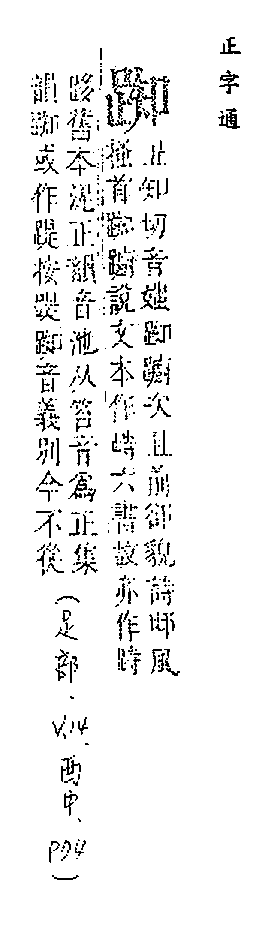 正字通
踟 丑知切音媸踟躕欠且前卻貌詩邶風
搔首踟躕說文本作峙六書故亦作跱
跢舊本泥正韻音池从笞音爲正集
韻踟或作踶按踶踟音義別今不從
（足部．V.14、酉中、P94）